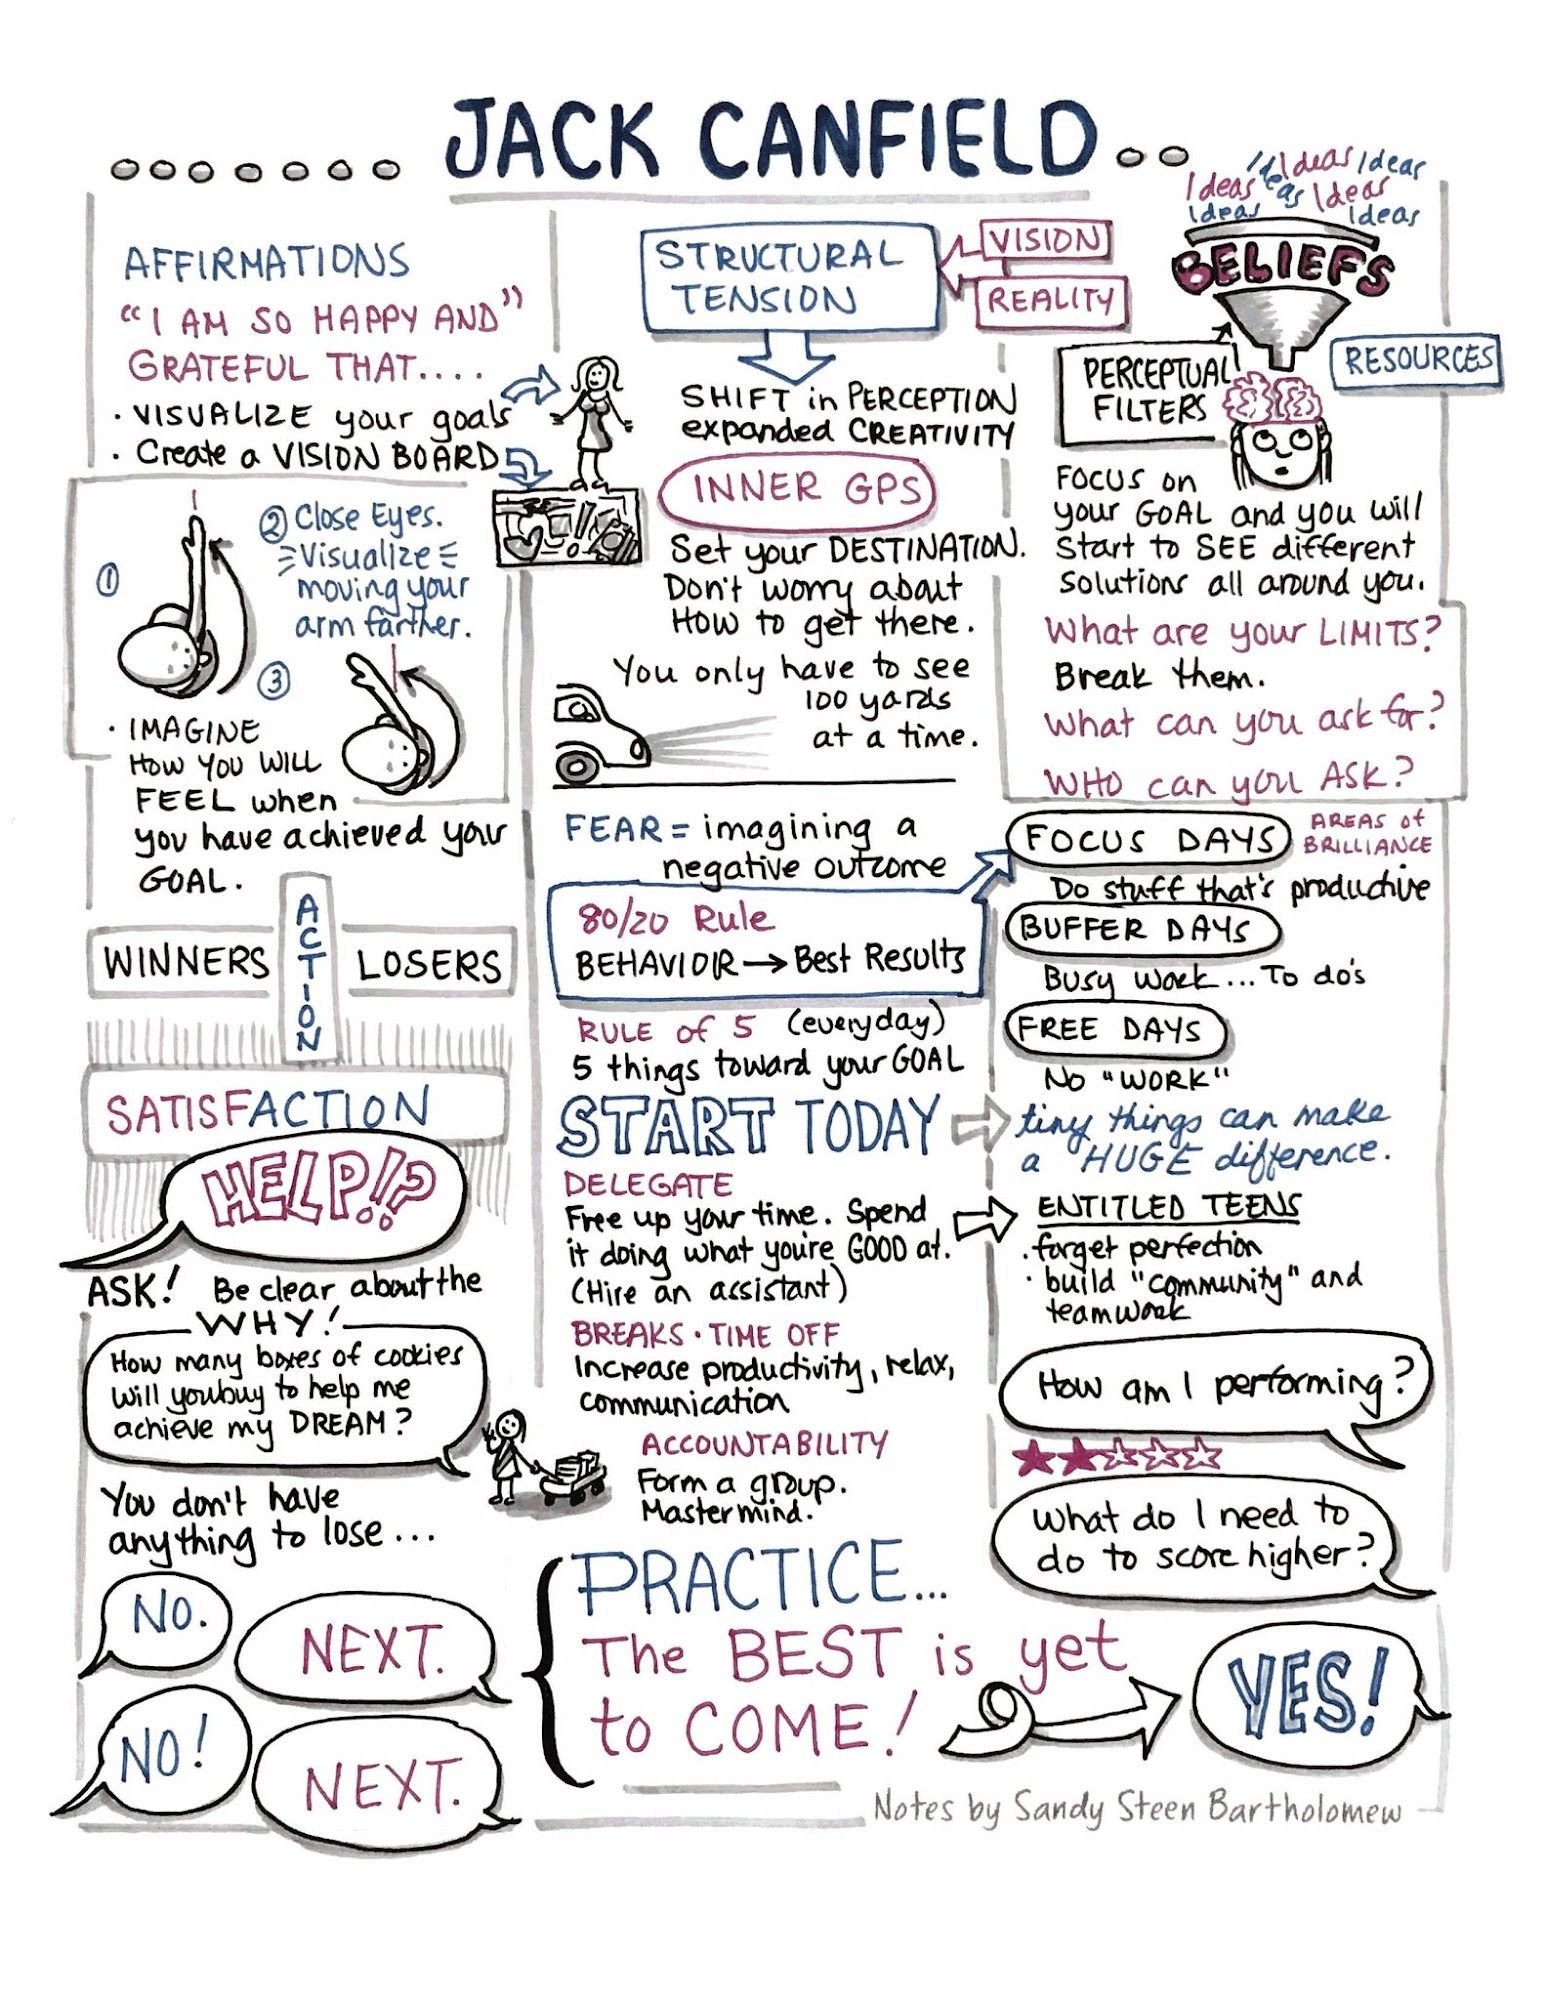 JACK CANFIELD
AFFIRMATIONS
"I AM SO HAPPY AND"
GRATEFUL THAT....
· VISUALIZE your goals
· Create a VISION BOARD
①
② Close Eyes.
Visualize
moving your
arm farther.
③
· IMAGINE
HOW YOU WILL
FEEL when
you have achieved your
GOAL.
WINNERS
ACTION
LOSERS
SATISFACTION
HELP!?
ASK! Be clear about the
WHY!
How many boxes of cookies
will you buy to help me
achieve my DREAM?
You don't have
anything to lose...
NO.
NEXT.
NO!
NEXT.
STRUCTURAL
TENSION
VISION
REALITY
SHIFT in PERCEPTION
expanded CREATIVITY
INNER GPS
Set your DESTINATION.
Don't worry about
HOW to get there.
You only have to see
100 yards
at a time.
FEAR = imagining a
negative outcome
80/20 Rule
BEHAVIOR → Best Results
RULE of 5 (everyday)
5 things toward your GOAL
START TODAY
DELEGATE
Free up your time. Spend
it doing what you're GOOD at.
(Hire an assistant)
BREAKS · TIME OFF
Increase productivity, relax,
communication
ACCOUNTABILITY
Form a group.
Mastermind.
PRACTICE...
The BEST is yet
to COME!
YES!
Ideas Ideas Ideas
Ideas Ideas Ideas
Ideas Ideas
BELIEFS
PERCEPTUAL
FILTERS
RESOURCES
FOCUS on
your GOAL and you will
start to SEE different
solutions all around you.
What are your LIMITS?
Break them.
What can you ask for?
WHO can you ASK?
FOCUS DAYS
AREAS of
BRILLIANCE
Do stuff that's productive
BUFFER DAYS
Busy work... To do's
FREE DAYS
NO "WORK"
tiny things can make
a HUGE difference.
ENTITLED TEENS
· forget perfection
· build "community" and
teamwork
How am I performing?
What do I need to
do to score higher?
Notes by Sandy Steen Bartholomew